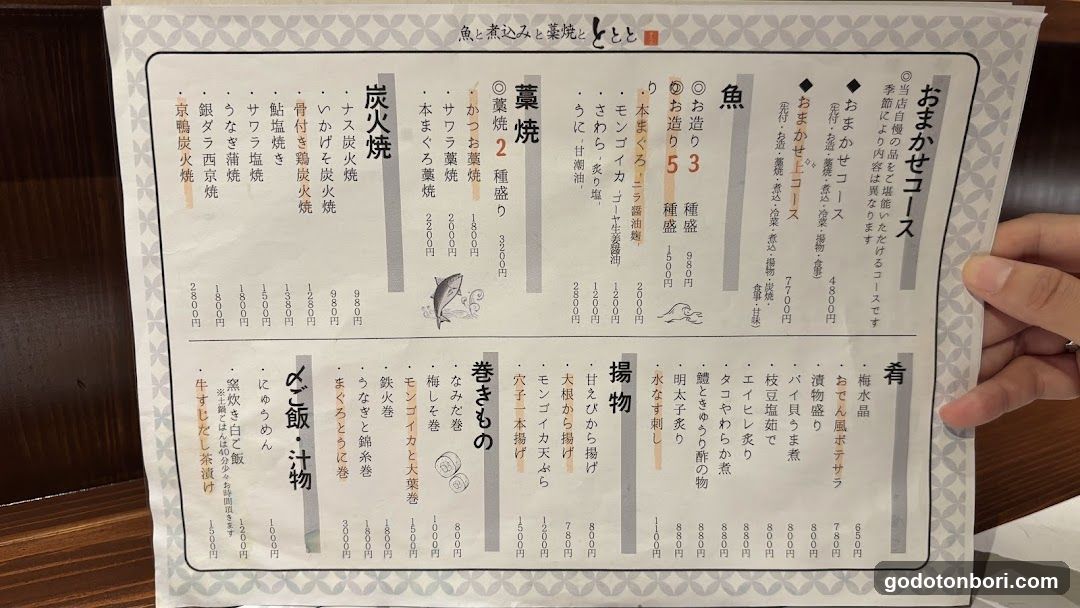 魚と煮込みと藁焼と ととと
おまかせコース
◎当店自慢の品をご堪能いただけるコースです
季節により内容は異なります
◆おまかせコース 4800円
(先付・お造・藁焼・煮込・冷菜・揚物・食事)
◆おまかせ上コース 7700円
(先付・お造・藁焼・冷菜・煮込・揚物・炭焼・
食事・甘味)
魚
◎お造り3種盛 980円
◎お造り5種盛り 1500円
・本まぐろ -ニラ醤油麹- 2000円
・モンゴイカ -ゴーヤ生姜醤油- 1200円
・さわら -炙り塩- 1200円
・うに -甘潮油- 2800円
藁焼
◎藁焼2種盛り 3200円
・かつお藁焼 1800円
・サワラ藁焼 2000円
・本まぐろ藁焼 2200円
炭火焼
・ナス炭火焼 980円
・いかげそ炭火焼 980円
・骨付き鶏炭火焼 1280円
・鮎塩焼き 1380円
・サワラ塩焼 1500円
・うなぎ蒲焼 1800円
・銀ダラ西京焼 1800円
・京鴨炭火焼 2800円
肴
・梅水晶 650円
・おでん風ポテサラ 780円
・漬物盛り 800円
・バイ貝うま煮 800円
・枝豆塩茹で 880円
・エイヒレ炙り 880円
・タコやわらか煮 880円
・鱧ときゅうり酢の物 880円
・明太子炙り 880円
・水なす刺し 1100円
揚物
・甘えびから揚げ 800円
・大根から揚げ 780円
・モンゴイカ天ぷら 1200円
・穴子一本揚げ 1500円
巻きもの
・なみだ巻 800円
・梅しそ巻 1000円
・鉄火巻 1800円
・モンゴイカと大葉巻 1500円
・うなぎと錦糸巻 1800円
・まぐろとうに巻 3000円
〆ご飯・汁物
・にゅうめん 1000円
・窯炊き白ご飯 1200円
※土鍋ごはんは40分少々お時間頂きます
・牛すじだし茶漬け 1500円
godotonbori.com